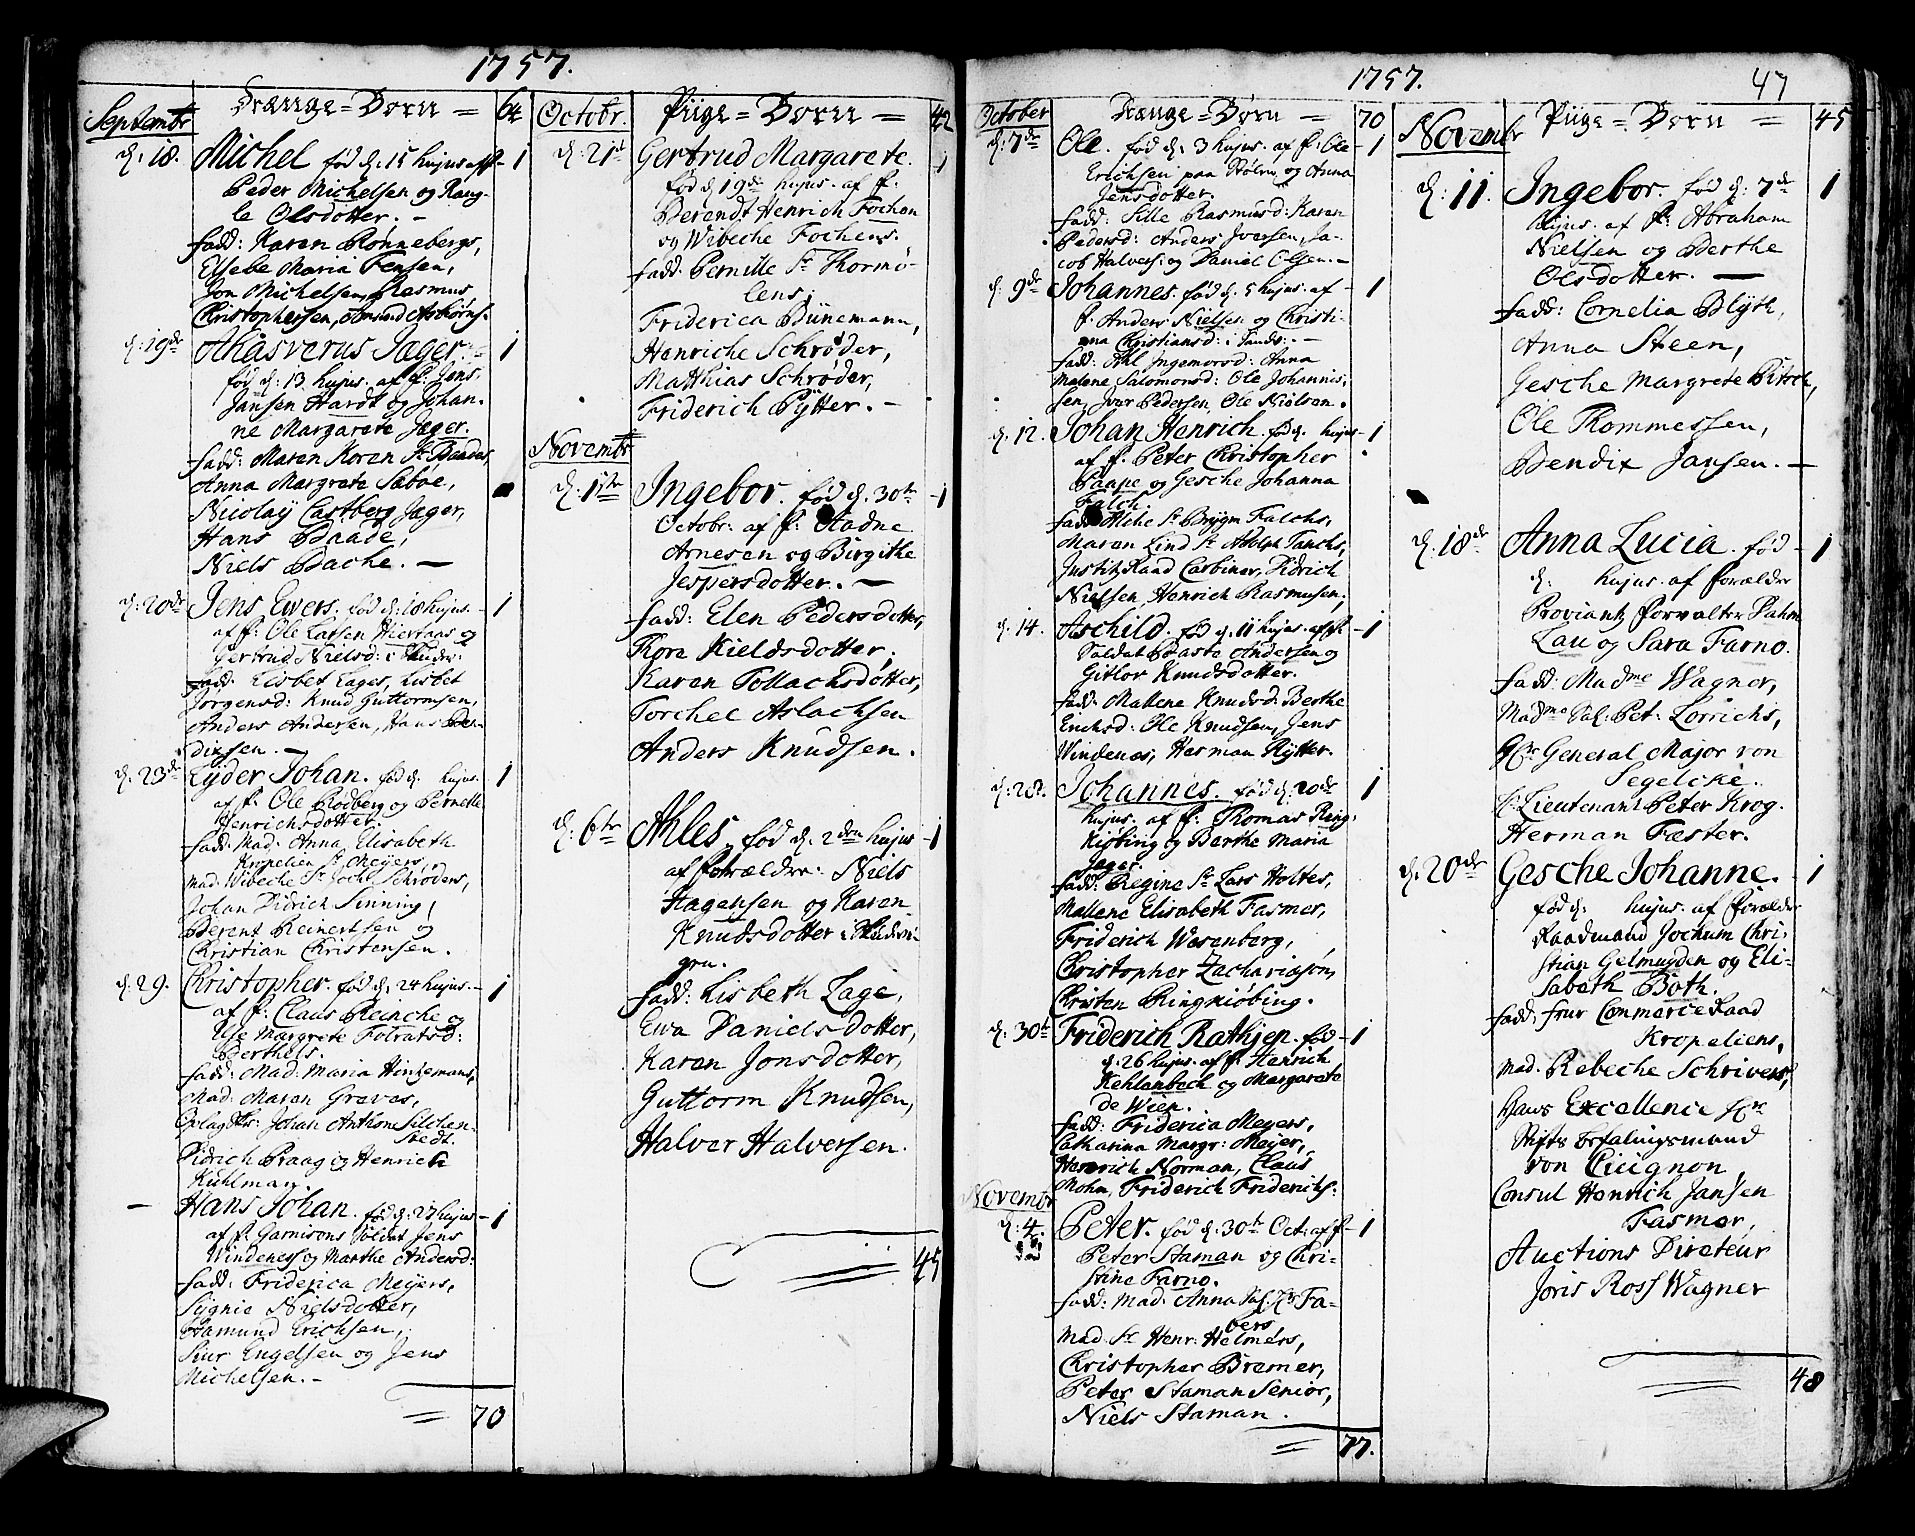 1757.
Septembr
Drænge = Børn = 64
d. 18. Michel fød d. 15 hujus af f. 1
Peder Michelsen og Rang-
le Olsdotter. -
fadd: Karen Rönnebergs,
Elsebe Maria Jensen,
Jon Michelsen, Rasmus
Christophersen, Amund Asbiörns.
d. 19de Ahasverus Jager. 1
fød d. 13 hujus. af f. Jens
Jansen Hardt og Johan-
ne Margarete Jæger.
fadd: Maren Koren Sr Baades,
Anna Margrete Saboe,
Nicolaÿ Castberg Jæger,
Hans Baade,
Niels Bache. -
d. 20de Jens Ewers. fød d. 18 hujus. 1
af f. Ole Larsen Hiertaas og
Gertrud Nielsd: i Skuder:
fadd: Lisbet Lages, Lisbet
Jörgensd: Knud Guttormsen,
Anders Andersen, Hans Ben-
dixsen. -
d. 23de Eÿder Johan. fød d. hujus. 1
af f. Ole Rödberg og Pernelle
Henrichsdotter.
fadd: Mad. Anna Elisabeth
Kropelien Sr Meÿers,
Mad. Wibeche Sr Joch. Schröders,
Johan Didrich Sinning,
Berent Reinertsen og
Christian Christensen.
d. 29. Christopher. fød d. 24 hujus. 1
af f. Claus Reincke og
Else Margrete Folratsd:
Berthels.
fadd: Mad: Maria Hinzemans,
Mad: Maren Greves,
Oplagskr: Johan Anthone Silchen-
stedt.
Didrich Praag og Henrich
Kuhlman.
- Hans Johan. fød d. 27 hujus 1
af f. Garnisons Soldat Jens
Windenes og Marthe Andersd:
fadd: Friderica Meÿers,
Sÿgnie Nielsdotter,
Hamund Erichsen,
Siur Engelsen og Jens
Michelsen. -
70
Octobr. Piige = Børn = 42
d. 21d Gertrud Margarete. 1
fød d. 19de hujus. af f.
Berendt Henrich Fochen
og Wibeche Fochens.
fadd. Pernille Sr Thormö-
lens,
Friderica Bünemann,
Henriche Schrøder,
Matthias Schrøder,
Friderich Pÿtter. -
Novembr
d. 1ste Ingebor. fød d. 30te 1
Octobr: af f. Aadne
Arnesen og Birgithe
Jespersdotter. -
fadd: Elen Pedersdotter,
Kora Kieldsdotter,
Karen Tollachsdotter,
Torchel Aslachsen
Anders Knudsen.
d. 6te Ahles. fød d. 2den hujus 1
af forældre: Niels
Hagensen og Karen
Knudsdotter i Skudevi-
gen.
fadd: Lisbeth Lage,
Ewa Danielsdotter,
Karen Jonsdotter,
Guttorm Knudsen,
Halver Halversen.
45
1757. 47
October Drænge = Børn = 70
d. 7de Ole. fød d. 3 hujus. af f. Ole 1
Erichsen paa Hølen og Anna
Jensdotter.
fadd: Sille Rasmusd: Karen
Pedersd: Anders Iversen, Ja-
cob Halvers: og Daniel Olsen. -
d. 9de Johannes. fød d. 5 hujus. af 1
f. Anders Nielsen og Christi-
ana Christiansd: i Sands. -
fadd: Ahl Ingemorsd: Anna
Malene Salomonsd: Ole Johannes-
sen, Iver Pedersen, Ole Nielsen.
d. 12. Johan Henrich. fød d. hujus 1
af f. Peter Christopher
Paape og Gesche Johanna
Falch.
fadd: Alche Sr Brÿgm Falchs,
Maren Lind Sr Adolph Tanchs,
Justitz Raad Carbiner, Didrich
Nielsen, Henrich Rasmusen,
d. 14. Aschild. fød d. 11 hujus. af f. 1
Soldat Baste Andersen og
Gitlor Knudsdotter.
fadd: Mallene Knudsd: Berthe
Erichsd: Ole Knudsen, Jens
Windenes, Herman Rÿtter.
d. 28. Johannes. fød d. 20de 1
hujus. af f. Thomas Ring-
kiöbing og Berthe Maria
Jager.
fadd: Regine Sr Lars Holtes,
Mallene Elisabeth Fasmer,
Friderich Wesenberg,
Christopher Zachariasön,
Christen Ringkiöbing.
d. 30te Friderich Rathjen. fød 1
d. 26 hujus. af f. Henrich
Kehlenbech og Margarete
De Wien.
fadd: Friderica Meyers,
Catharina Margr: Meÿer,
Henrich Norman, Claus
Mohn, Friderich Friderichs:
Novembr
d. 4. Peter. fød d. 30te Oct: af f. 1
Peter Staman og Chri-
stine Farno.
fadd: Mad: Anna Sal: Hr Fa-
bers
Mad. Sr Henr: Helmers,
Christopher Bremer,
Peter Staman Senior,
Niels Staman.
77.
Novembr Piige = Børn = 45
d. 11. Ingebor. fød d. 7de 1
hujus. af f. Abraham
Nielsen og Berthe
Olsdotter. -
fadd: Cornelia Blÿtt,
Anna Steen,
Gesche Margrete Pitsch,
Ole Thommessen,
Bendix Jansen. -
d. 18de Anna Lucia. fød 1
d. hujus. af forælder
Proviant Forvalter Palm
Lau og Sara Farno.
fadd: Madme Wagner,
Madme Sal: Pet: Lorrichs,
Hr: General Major von
Segelcke.
Sr Lieutenant Peter Krog.
Herman Fæster.
d. 20de Gesche Johanne. 1
fød d. hujus. af forælder
Raadmand Jochum Chri-
stian Gelmuyden og Eli-
sabeth Both.
fadd: frue Commerce Raad
Kropeliens,
Mad. Rebeche Schrivers,
Hans Excellence Hr
Stifts Befalingsmand
von Cicignon,
Consul Henrich Jansen
Fasmer,
Auctions Directeur
Joris Ross Wagner
48